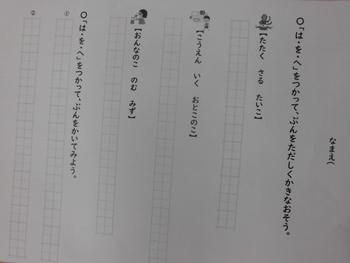 なまえ(
○「は・を・へ」をつかって、ぶんをただしくかきなおそう。
【たたく さる たいこ】
【こうえん いく おとこのこ】
【おんなのこ のむ みず】
○「は・を・へ」をつかって、ぶんをかいてみよう。
①
②